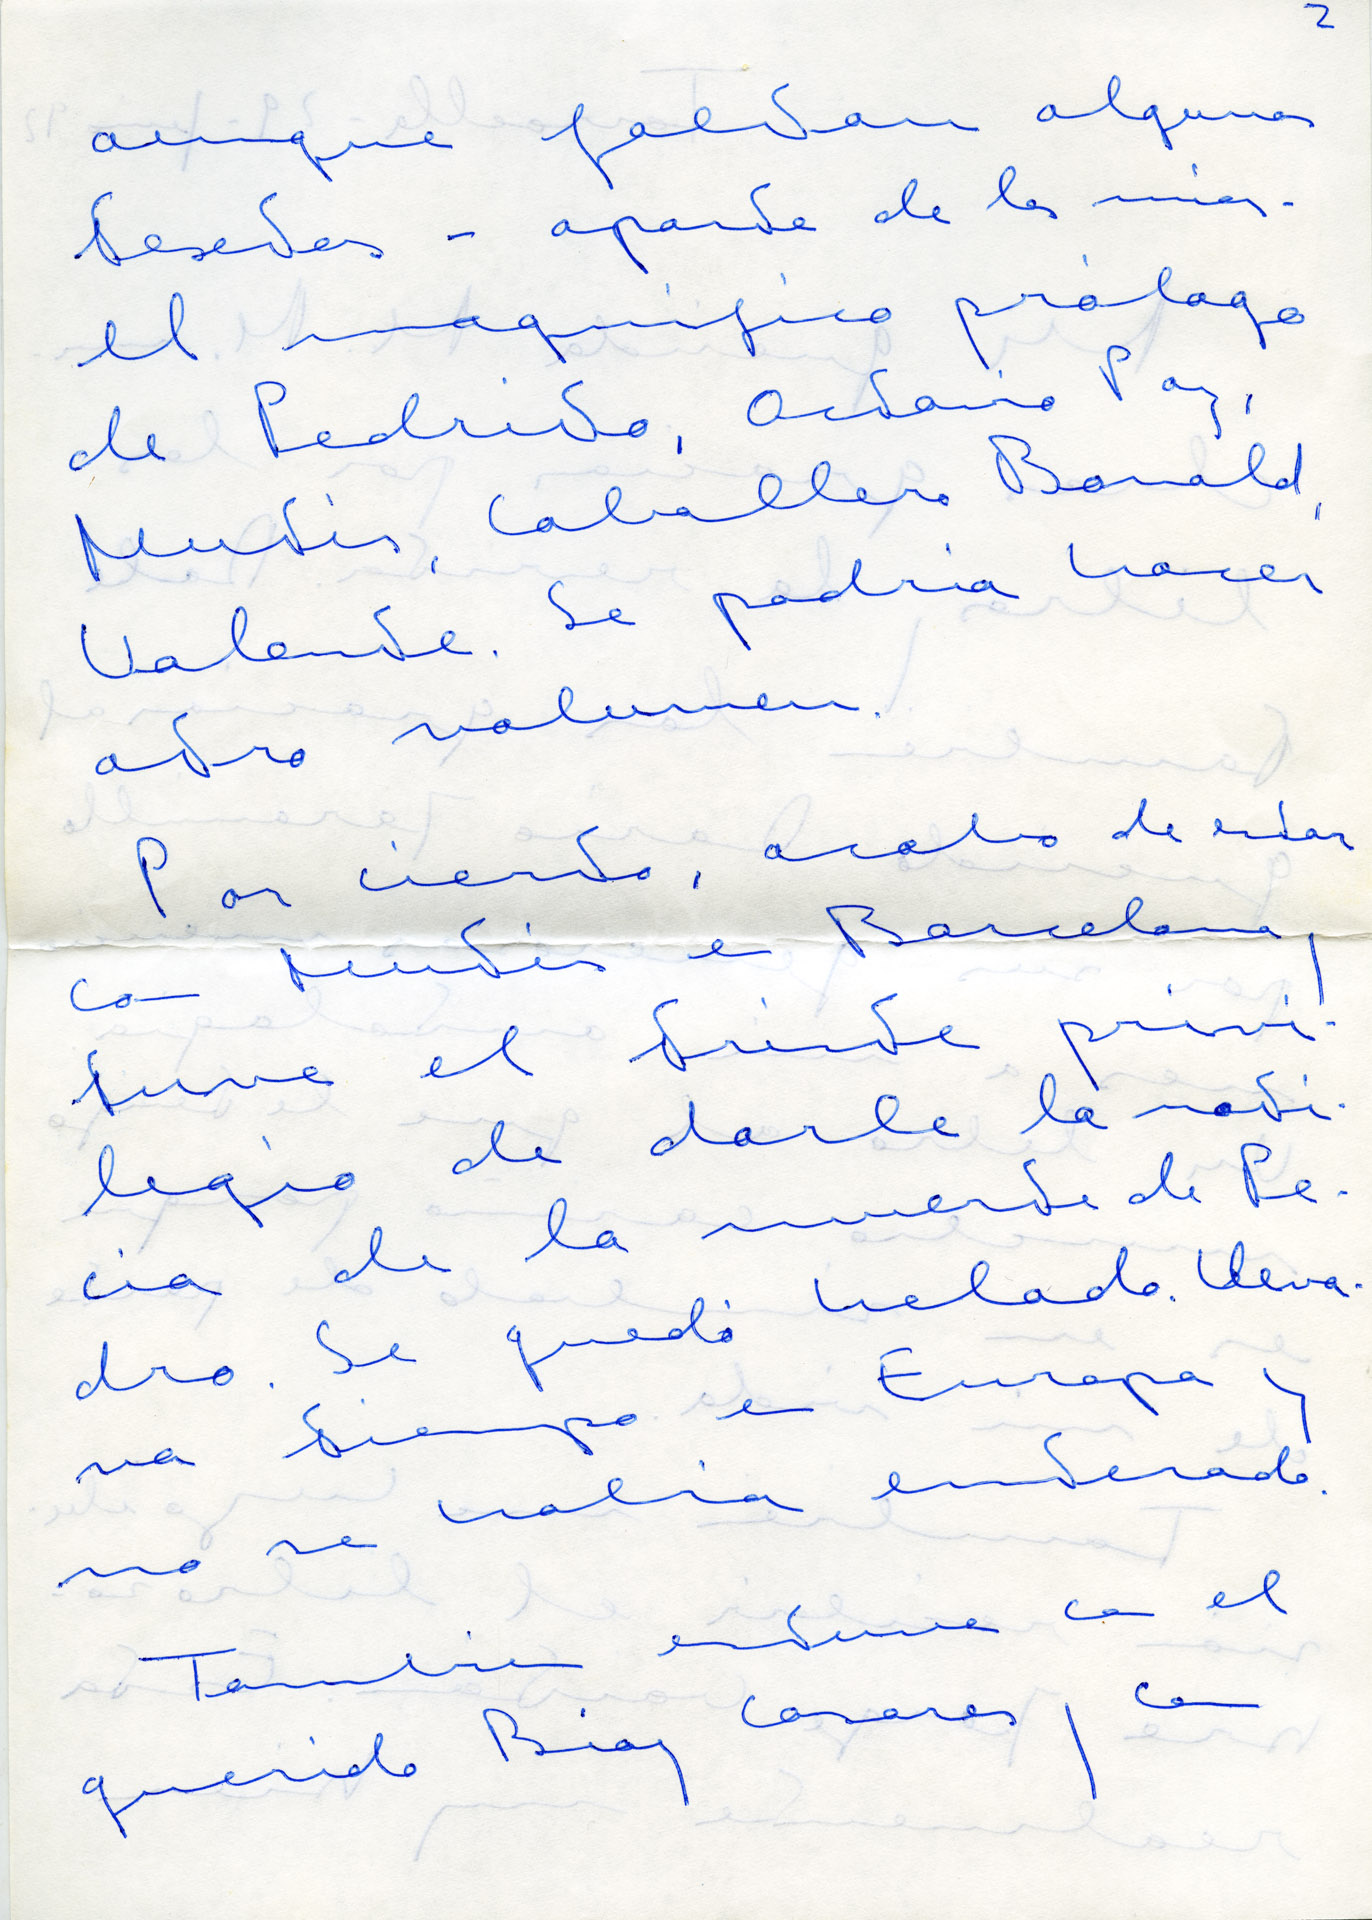 2
aunque faltan algunos
textos - aparte de los míos -
el magnífico prólogo
de Pedrito, Octavio Paz,
Mutis, Caballero Bonald,
Valente. Se podría hacer
otro volumen.
Por cierto, acabo de estar
con Mutis en Barcelona,
tuve el triste privi-
legio de darle la noti-
cia de la muerte de Pe-
dro. Se quedó helado. Lleva-
va tiempo en Europa y
no se había enterado.
También estuve con el
querido Bioy Casares, con